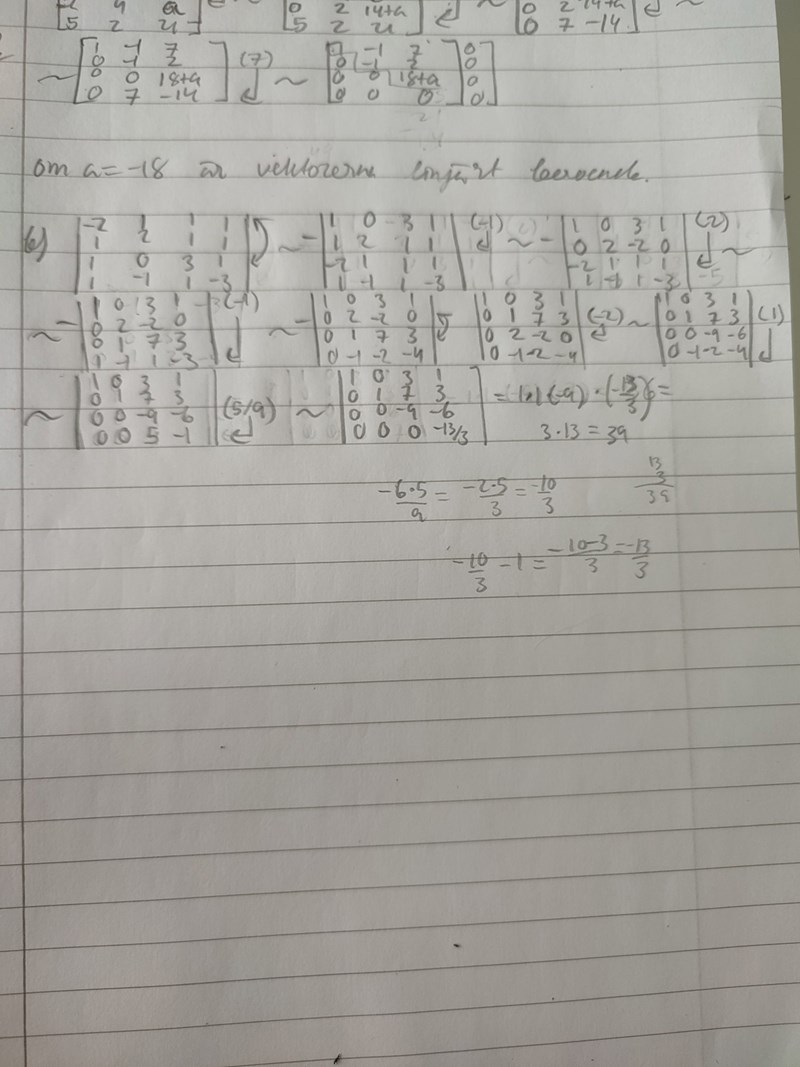 5 2 21 ] [ 0 2 14+a 5 2 21 ] ~ [ 0 2 14+a 0 7 -14 ] ~
~ [ 1 -1 7 0 -1 2 0 0 18+a 0 7 -14 ] (7) ~ [ -1 7 0 -1 2 0 0 18+a 0 0 0 ] 0 0 0 0 ]
om a = -18 är vektorerna linjärt beroende.
b) | -2 1 1 1 1 2 1 1 1 0 3 1 1 -1 1 -3 | ~ - | 1 0 3 1 1 2 1 1 -2 1 1 1 1 -1 1 -3 | (-1) ~ - | 1 0 3 1 0 2 -2 0 -2 1 1 1 1 -1 1 -3 | (2) ~
~ - | 1 0 3 1 0 2 -2 0 0 1 7 3 1 -1 1 -3 | (-1) ~ - | 1 0 3 1 0 2 -2 0 0 1 7 3 0 -1 -2 -4 | | 1 0 3 1 0 1 7 3 0 2 -2 0 0 -1 -2 -4 | (-2) ~ | 1 0 3 1 0 1 7 3 0 0 -9 -6 0 -1 -2 -4 | (1)
~ | 1 0 3 1 0 1 7 3 0 0 -9 -6 0 0 5 -1 | (5/9) ~ | 1 0 3 1 0 1 7 3 0 0 -9 -6 0 0 0 -13/3 | = 1·1·(-9)·(-13/3) =
3·13 = 39
13 3 39
-6·5/9 = -2·5/3 = -10/3
-10/3 - 1 = -10-3/3 = -13/3